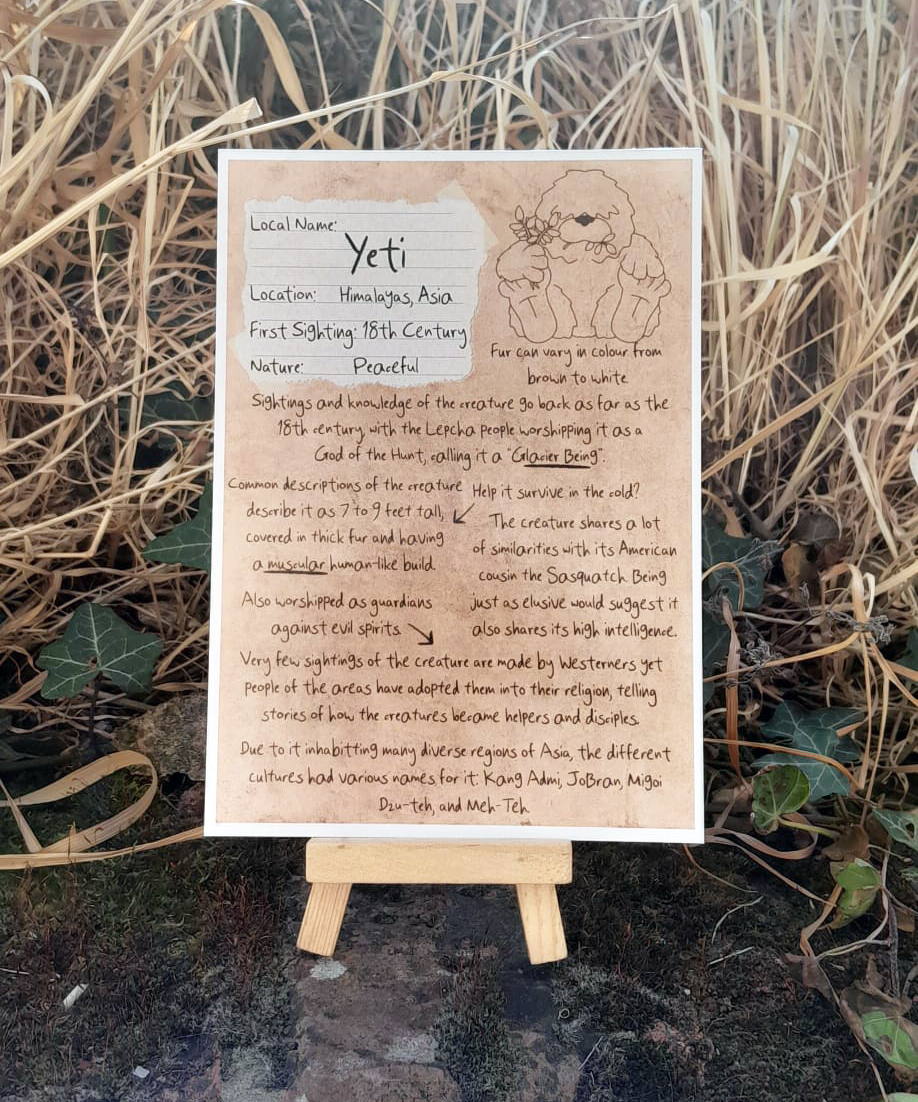 Local Name:
Yeti
Location: Himalayas, Asia
First Sighting: 18th Century
Nature: Peaceful
Fur can vary in colour from
brown to white.
Sightings and knowledge of the creature go back as far as the
18th century, with the Lepcha people worshipping it as a
God of the Hunt, calling it a "Glacier Being".
Common descriptions of the creature
describe it as 7 to 9 feet tall,
covered in thick fur and having
a muscular human-like build.
Help it survive in the cold?
The creature shares a lot
of similarities with its American
cousin the Sasquatch. Being
just as elusive would suggest it
also shares its high intelligence.
Also worshipped as guardians
against evil spirits.
Very few sightings of the creature are made by Westerners yet
people of the areas have adopted them into their religion, telling
stories of how the creatures became helpers and disciples.
Due to it inhabitting many diverse regions of Asia, the different
cultures had various names for it: Kang Admi, JoBran, Migoi
Dzu-teh, and Meh-Teh.